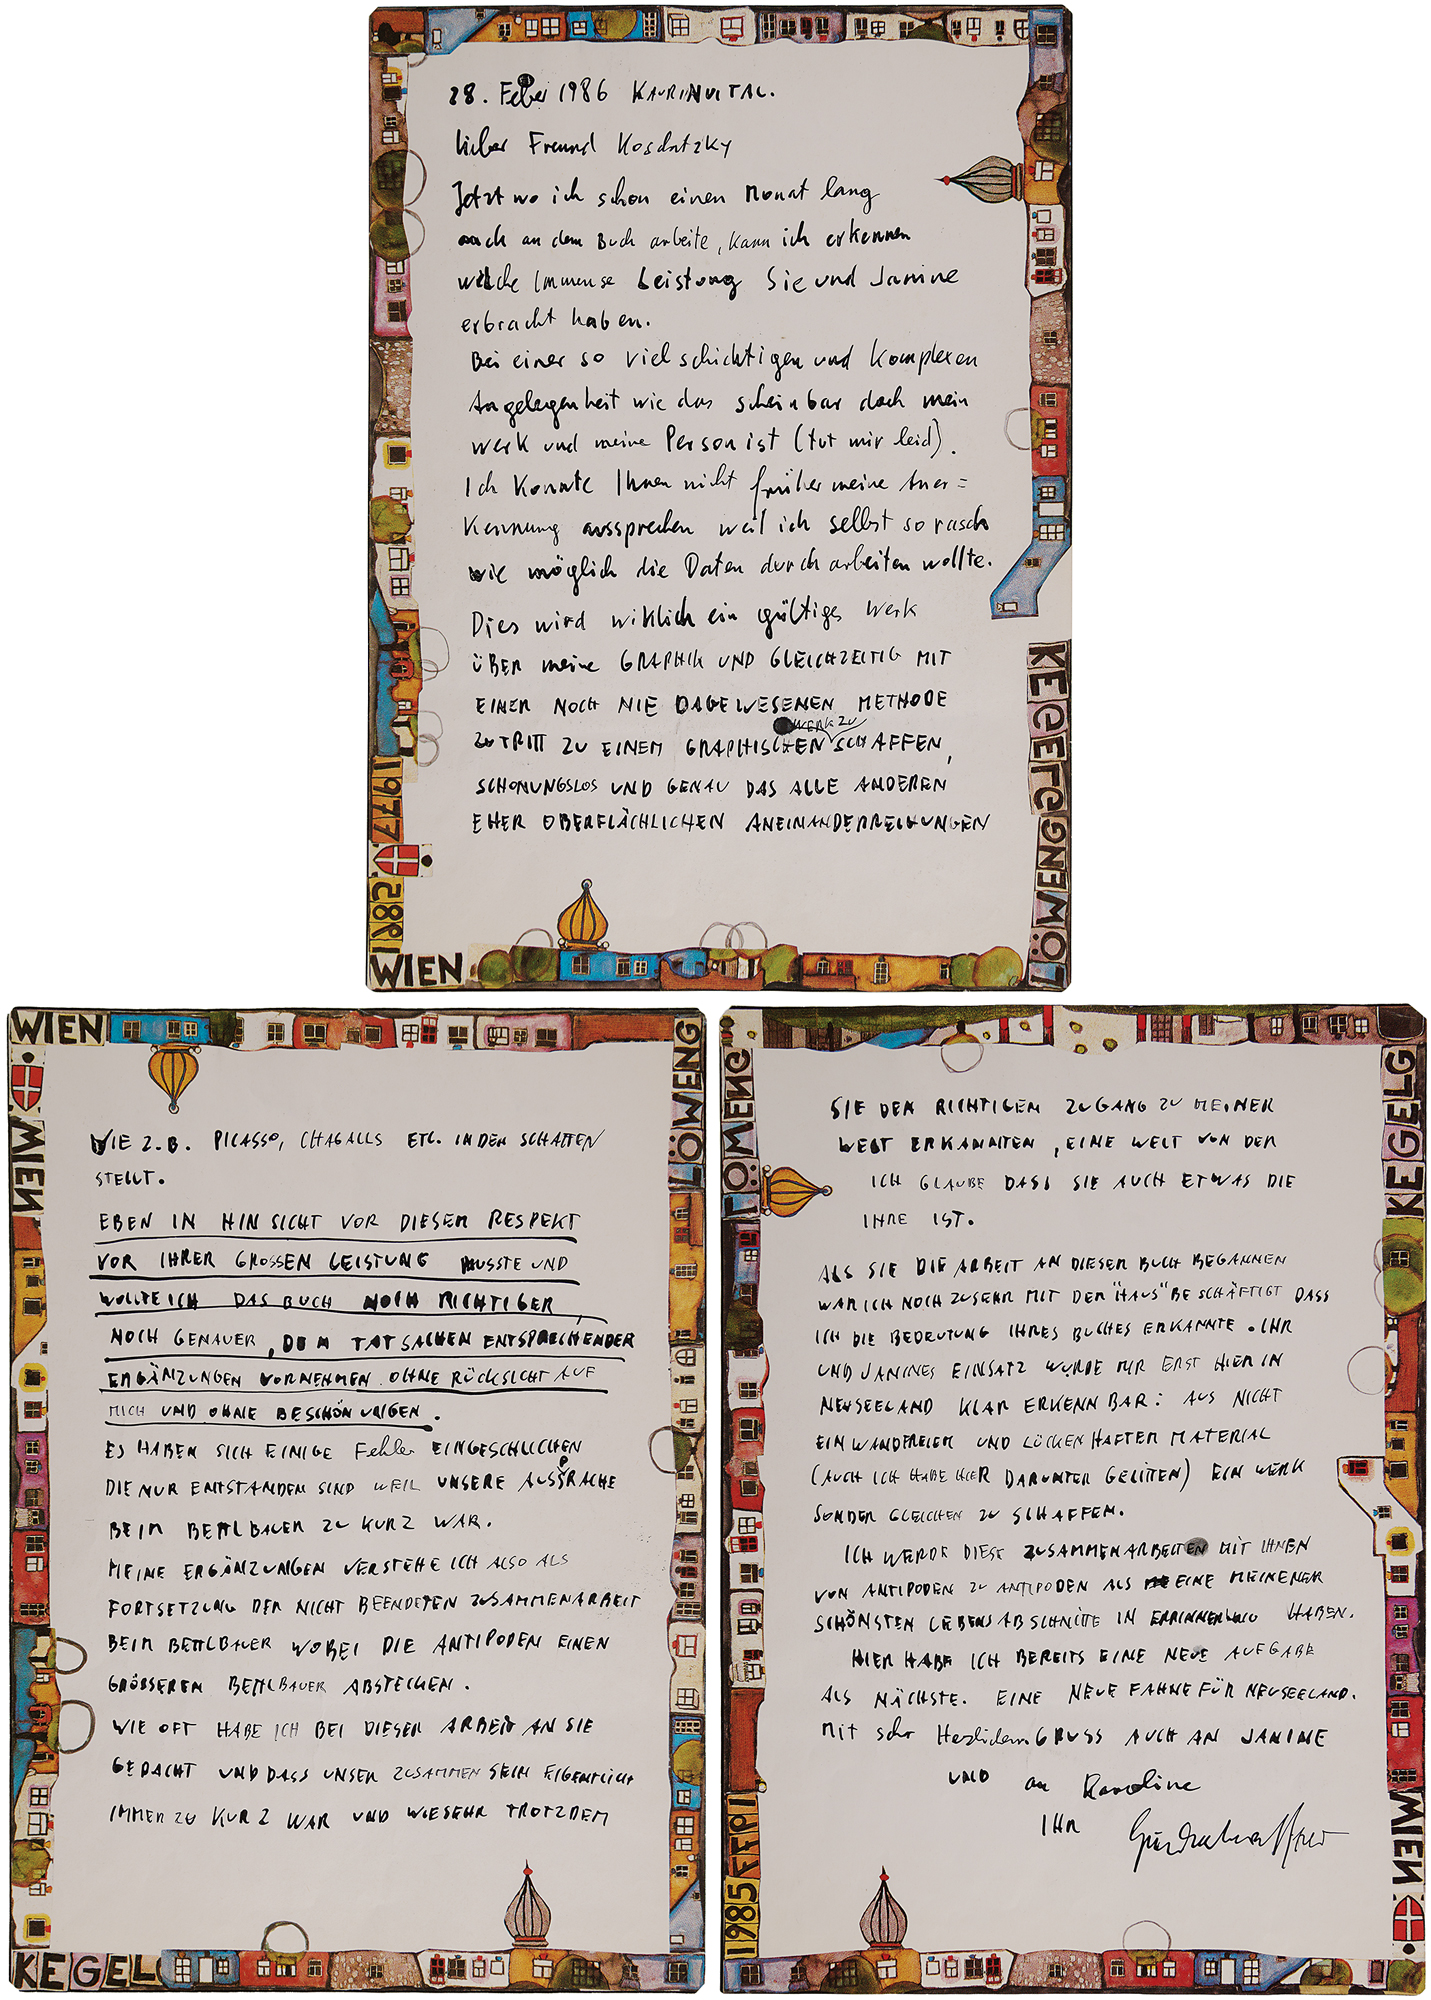 28. Feber 1986 KAURINUITAL.
Lieber Freund Koschatzky
Jetzt wo ich schon einen Monat lang
auch an dem Buch arbeite, kann ich erkennen
welche Immense Leistung Sie und Janine
erbracht haben.
Bei einer so vielschichtigen und komplexen
Angelegenheit wie das scheinbar doch mein
werk und meine Person ist (tut mir leid).
Ich konnte Ihnen nicht früher meine Aner=
kennung aussprechen weil ich selbst so rasch
wie möglich die Daten durcharbeiten wollte.
Dies wird wiklich ein gültiges Werk
ÜBER meine GRAPHIK UND GLEICHZEITIG MIT
EINER NOCH NIE DAGEWESENEN METHODE
WERK ZU
ZUTRITT ZU EINEM GRAPHISCHEN SCHAFFEN,
SCHONUNGSLOS UND GENAU DAS ALLE ANDEREN
EHER OBERFLÄCHLICHEN ANEINANDERREIHUNGEN
KEGELGGNEMÖL
1977
1985
WIEN
WIEN
WIEN
LÖWENG
WIE Z.B. PICASSO, CHAGALLS ETC. IN DEN SCHATTEN
STELLT.
EBEN IN HINSICHT VOR DIESEM RESPEKT
VOR IHRER GROSSEN LEISTUNG MUSSTE UND
WOLLTE ICH DAS BUCH NOCH RICHTIGER,
NOCH GENAUER, DEN TATSACHEN ENTSPRECHENDER
ERGÄNZUNGEN VORNEHMEN. OHNE RÜCKSICHT AUF
MICH UND OHNE BESCHÖNUNGEN.
ES HABEN SICH EINIGE Fehler EINGESCHLICHEN
DIE NUR ENTSTANDEN SIND WEIL UNSERE AUSSPRACHE
BEIM BETTLBAUER ZU KURZ WAR.
MEINE ERGÄNZUNGEN VERSTEHE ICH ALSO ALS
FORTSETZUNG DER NICHT BEENDETEN ZUSAMMENARBEIT
BEIM BETTLBAUER WOBEI DIE ANTIPODEN EINEN
GRÖSSEREN BETTLBAUER ABSTECKEN.
WIE OFT HABE ICH BEI DIESER ARBEIT AN SIE
GEDACHT UND DASS UNSER ZUSAMMENSEIN EIGENTLICH
IMMER ZU KURZ WAR UND WIESEHR TROTZDEM
KEGEL
LÖMENG
KEGELG
SIE DEN RICHTIGEN ZUGANG ZU MEINER
WELT ERKANNTEN, EINE WELT VON DER
ICH GLAUBE DASS SIE AUCH ETWAS DIE
IHRE IST.
ALS SIE DIE ARBEIT AN DIESEM BUCH BEGANNEN
WAR ICH NOCH ZUSEHR MIT DEM "HAUS" BESCHÄFTIGT DASS
ICH DIE BEDEUTUNG IHRES BUCHES ERKANNTE. IHR
UND JANINES EINSATZ WURDE MIR ERST HIER IN
NEUSEELAND KLAR ERKENNBAR: AUS NICHT
EINWANDFREIEM UND LÜCKENHAFTEM MATERIAL
(AUCH ICH HABE HIER DARUNTER GELITTEN) EIN WERK
SONDERGLEICHEN ZU SCHAFFEN.
ICH WERDE DIESE ZUSAMMENARBEITEN MIT IHNEN
VON ANTIPODEN ZU ANTIPODEN ALS EINE MEINENER
SCHÖNSTEN LEBENSABSCHNITTE IN ERRINNERUNG HABEN.
HIER HABE ICH BEREITS EINE NEUE AUFGABE
ALS NÄCHSTE. EINE NEUE FAHNE FÜR NEUSEELAND.
Mit sehr Herzlichem GRUSS AUCH AN JANINE
UND an Karoline
IHR Hundertwasser
1985
WIEN